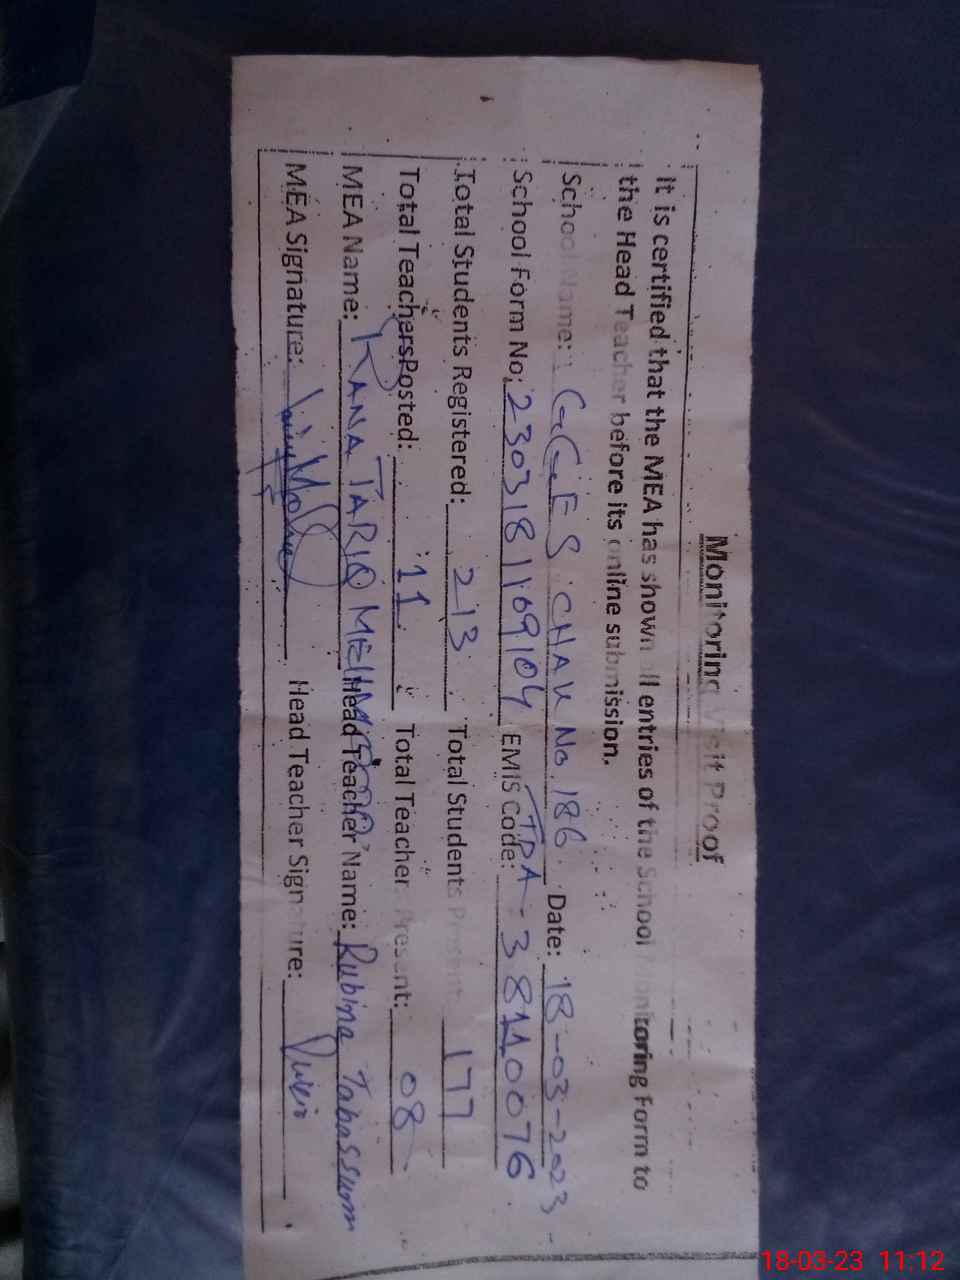 Monitoring Visit Proof
It is certified that the MEA has shown all entries of the School Monitoring Form to
the Head Teacher before its online submission.
School Name: GGES CHAK No. 186 TDA Date: 18-03-2023
School Form No: 2303181169104 EMIS Code: 38110076
Total Students Registered: 213 Total Students Present: 177
Total Teachers Posted: 11 Total Teacher Present: 08
MEA Name: RANA TARIQ MEHMOOD Head Teacher Name: Rubina Tabassum
MEA Signature: Head Teacher Signature:
18-03-23 11:12